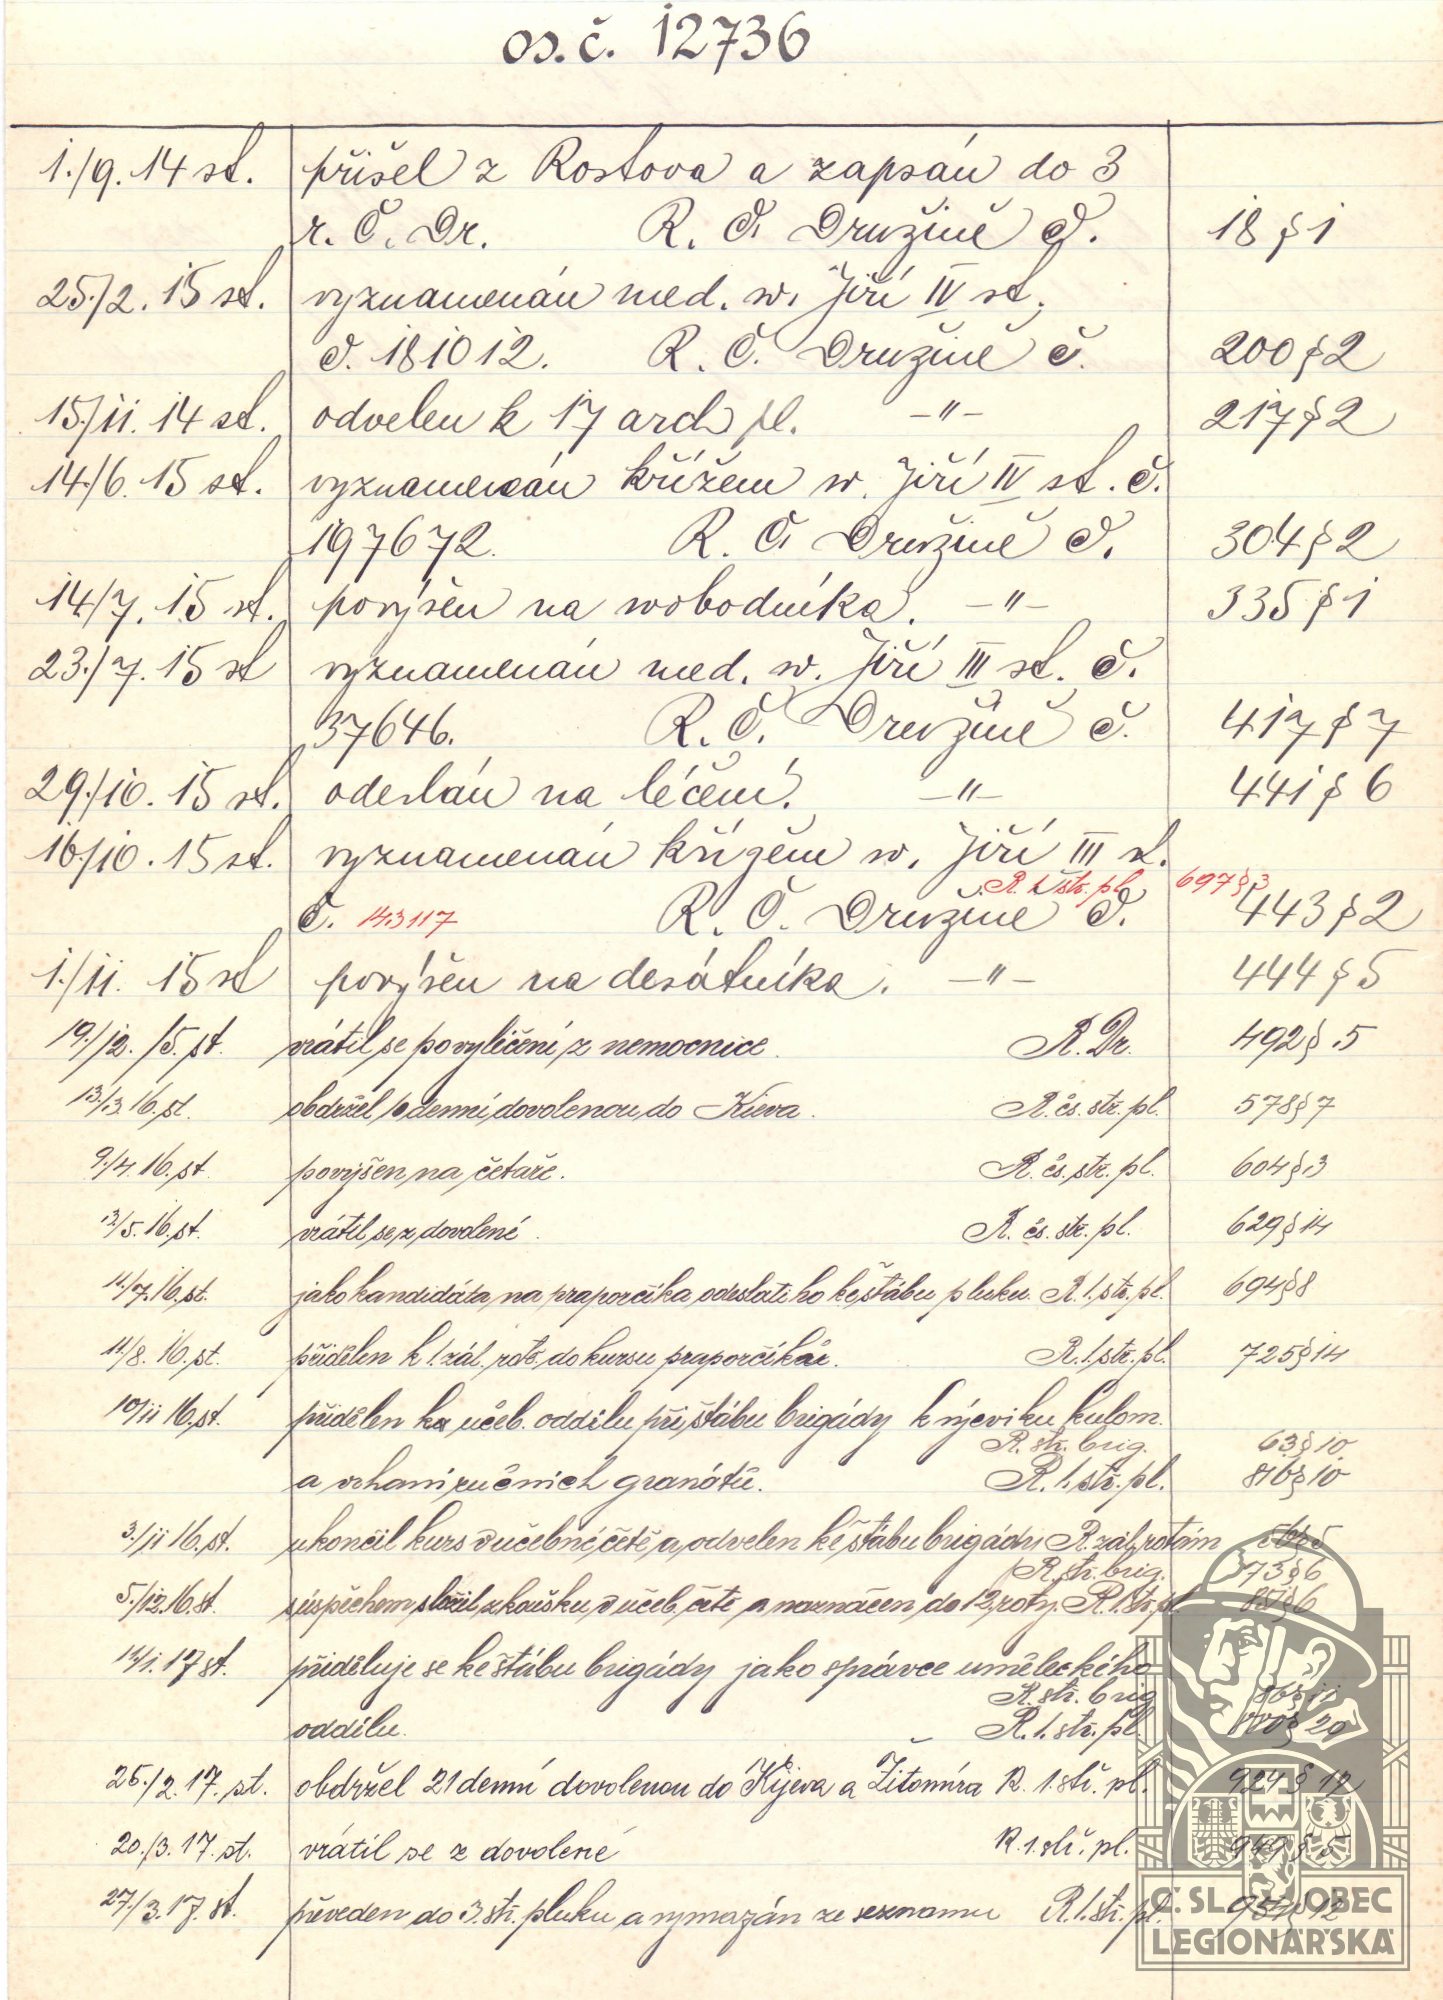 os. č. 12736
1./9. 14 st. přišel z Rostova a zapsán do 3
r. Č. Dr. R. Č. Družině č. 18 § 1
25./2. 15 st. vyznamenán med. sv. Jiří IV st.
č. 181012. R. Č. Družině č. 200 § 2
15./11. 14 st. odvelen k 17 arch pl. –"– 217 § 2
14/6. 15 st. vyznamenán křížem sv. Jiří IV st. č.
197672. R. Č. Družině č. 304 § 2
14/7. 15 st. povýšen na svobodníka. –"– 335 § 1
23./7. 15 st vyznamenán med. sv. Jiří III st. č.
37646. R. Č. Družině č. 417 § 7
29./10. 15 st. odeslán na léčení. –"– 441 § 6
16/10. 15 st. vyznamenán křížem sv. Jiří III st.
R. 1. stř. pl. 697 § 3
č. 143117 R. Č. Družině č. 443 § 2
1./11. 15 st povýšen na desátníka. –"– 444 § 5
19./12. 15. st. vrátil se po vyléčení z nemocnice. R. Dr. 492 § 5
13./3. 16. st. obdržel denní dovolenou do Kieva. R. čs. stř. pl. 578 § 7
9./4. 16. st. povýšen na četaře. R. čs. stř. pl. 604 § 3
/5. 16. st. vrátil se z dovolené. R. čs. stř. pl. 629 § 14
11./7. 16. st. jako kandidáta na praporčíka odeslati ho ke štábu pluku. R. 1. stř. pl. 694 § 8
11./8. 16. st. přidělen k 1. zál. rotě do kursu praporčíkův. R. 1. stř. pl. 725 § 14
10/11 16. st. přidělen ku učeb. oddílu při štábu brigády k výcviku kulom.
R. stř. brig. 63 § 10
a vrhaní ručních granátů. R. 1. stř. pl. 816 § 10
3./11 16. st. ukončil kurs v učebné četě a odvelen ke štábu brigády R. zál. rotám 56 § 5
R. stř. brig. 73 § 6
5./12. 16. st. s úspěchem složil zkoušku v učeb. četě a naznačen do 12. roty. R. 1. stř. pl. 851 § 6
/1. 17 st. přiděluje se ke štábu brigády jako správce uměleckého
R. stř. brig. 86 § 11
oddílu. R. 1. stř. pl. § 20
26./2. 17. st. obdržel 21 denní dovolenou do Kijeva a Žitomíra R. 1. stř. pl. 924 § 12
20./3. 17. st. vrátil se z dovolené R. 1. stř. pl. 949 § 5
27./3. 17. st. převeden do 3. stř. pluku a vymazán ze seznamu R. 1. stř. pl. 957 § 12
Č. SL. OBEC
LEGIONÁŘSKÁ